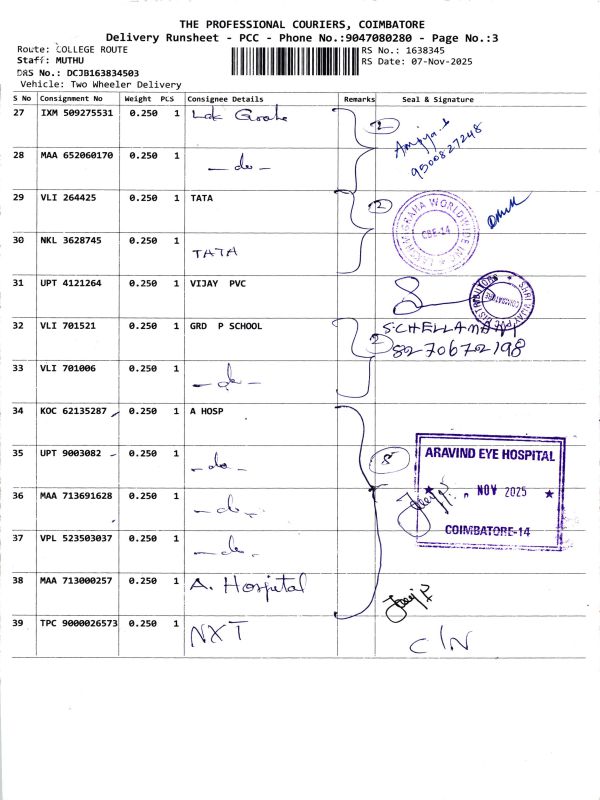 THE PROFESSIONAL COURIERS, COIMBATORE
Delivery Runsheet - PCC - Phone No.:9047080280 - Page No.:3
Route: COLLEGE ROUTE
RS No.: 1638345
Staff: MUTHU
RS Date: 07-Nov-2025
DRS No.: DCJB163834503
Vehicle: Two Wheeler Delivery
S No Consignment No Weight PCS Consignee Details Remarks Seal & Signature
27 IXM 509275531 0.250 1 2
9500827248
28 MAA 652060170 0.250 1 - do -
29 VLI 264425 0.250 1 TATA 2
CBE-14
30 NKL 3628745 0.250 1 TATA
31 UPT 4121264 0.250 1 VIJAY PVC
32 VLI 701521 0.250 1 GRD P SCHOOL 2 S.CHELLAMANI
8270672198
33 VLI 701006 0.250 1 - do -
34 KOC 62135287 0.250 1 A HOSP
35 UPT 9003082 0.250 1 - do -
ARAVIND EYE HOSPITAL
36 MAA 713691628 0.250 1 - do -
NOV 2025
37 VPL 523503037 0.250 1 - do -
COIMBATORE-14
38 MAA 713000257 0.250 1 A. Hospital
39 TPC 9000026573 0.250 1 NXT C/N